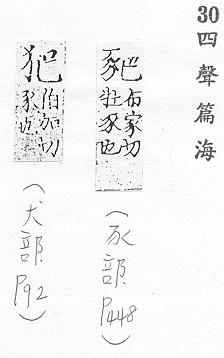 30 四聲篇海
豝 布家切
牡豕也
(豕部 P448)
伯加切
豕也
(犬部 P92)